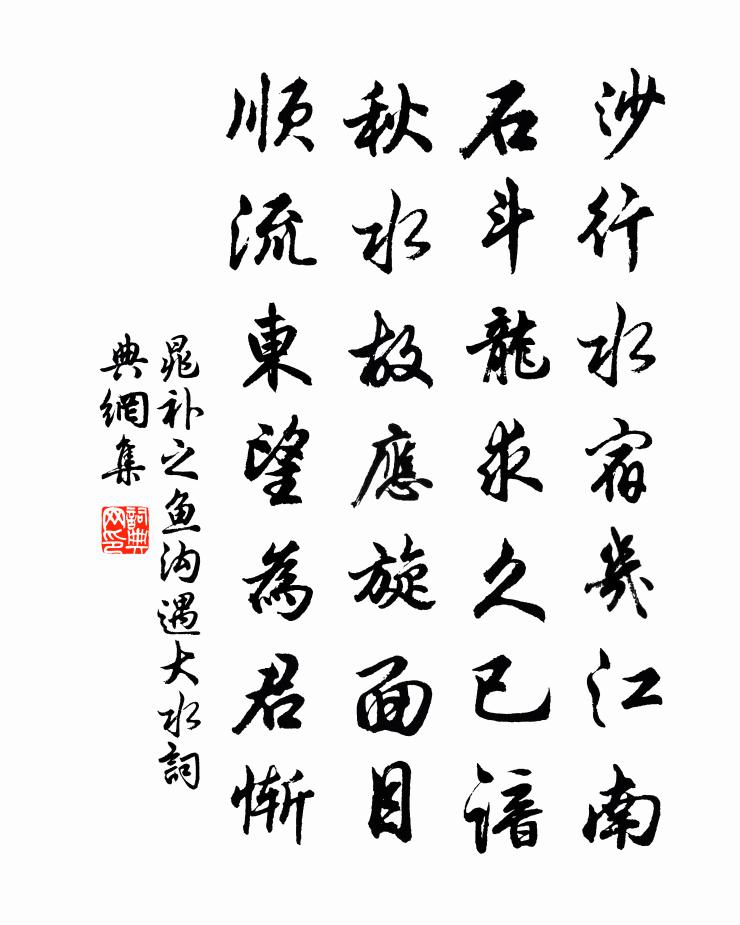 沙行水宿幾江南
石斗龍求久已諳
秋水故應旋面目
順流東望為君慚
晁补之鱼沟遇大水詞
典網集
詞典
网印